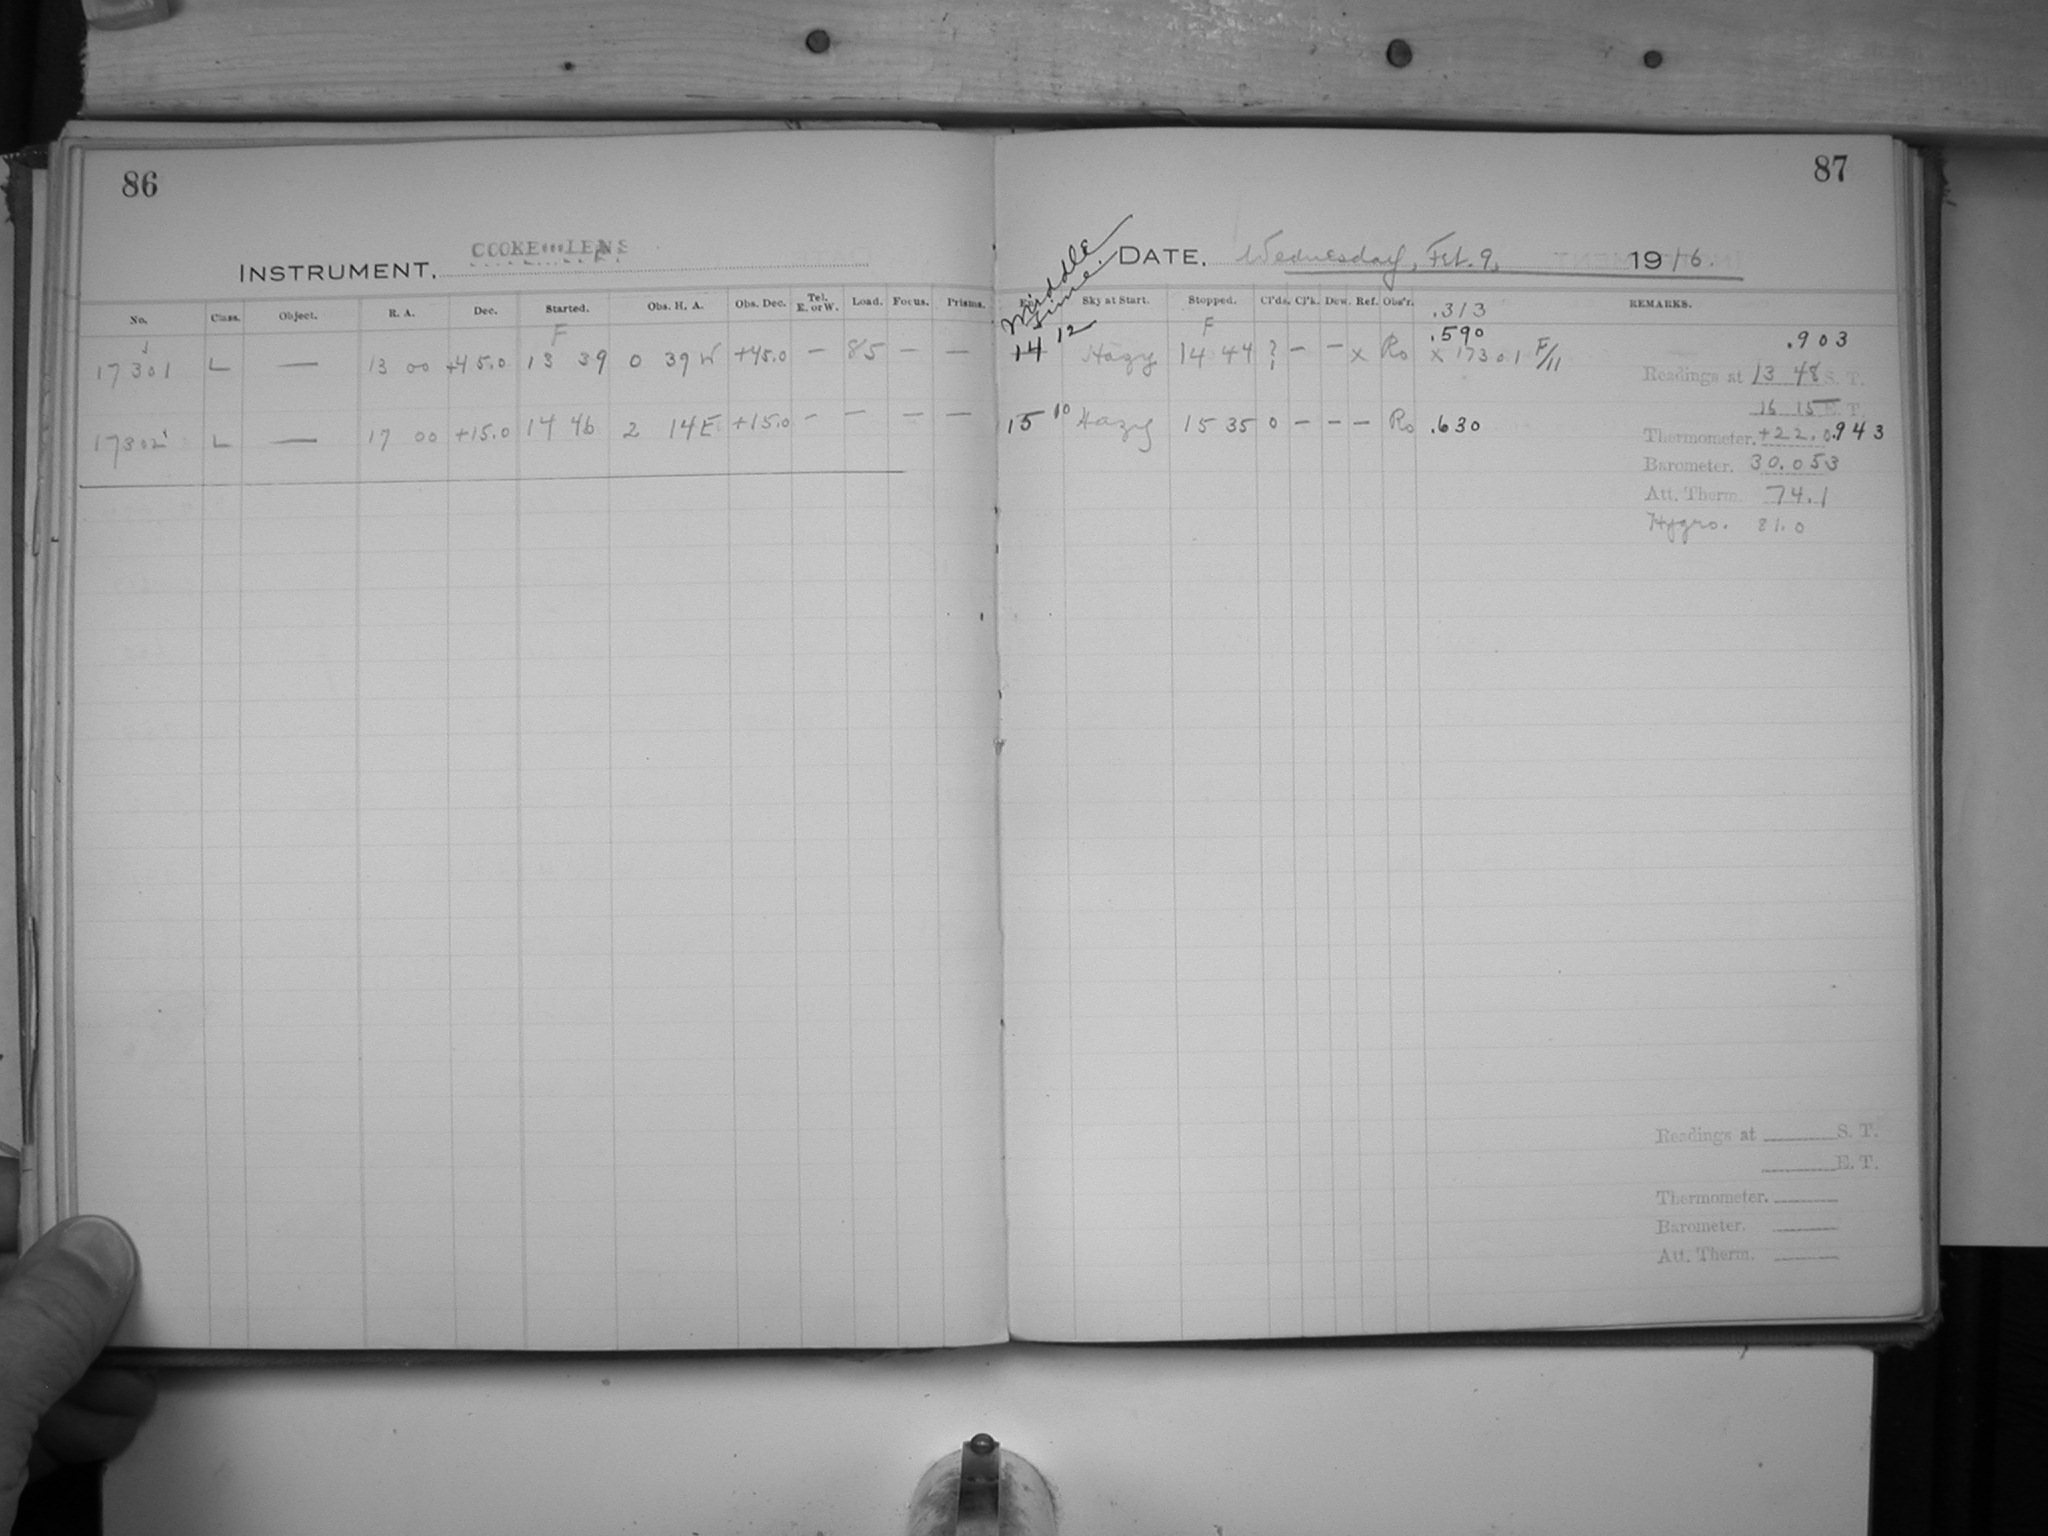 86
INSTRUMENT. COOKE LENS
No. Class. Object. R. A. Dec. Started. Obs. H. A. Obs. Dec. Tel. E. or W. Load. Focus. Prisms.
F
17301 L — 13 00 +45.0 13 39 0 39 W +45.0 — 85 — —
17302 L — 17 00 +15.0 14 46 2 14 E +15.0 — — — —
87
Middle Time.
DATE. Wednesday, Feb. 9, 1916.
Sky at Start. Stopped. Cl'ds. Cl'k. Dew. Ref. Obs'r. .313 REMARKS.
F .590 .903
14 12 Hazy 14 44 ? — — x Ro x 17301 F/11
Readings at 13 48 S. T.
16 15 E. T.
15 10 Hazy 15 35 0 — — — Ro .630
Thermometer. +22.0 .943
Barometer. 30.053
Att. Therm. 74.1
Hygro. 81.0
Readings at S. T.
E. T.
Thermometer.
Barometer.
Att. Therm.